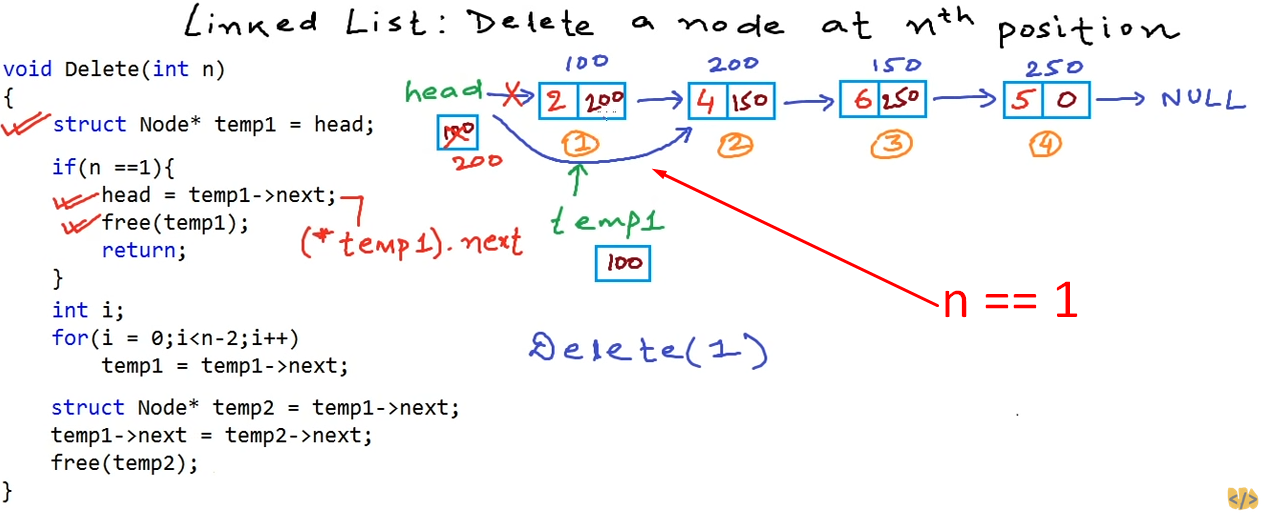 Linked List: Delete a node at nth position
void Delete(int n)
{
struct Node* temp1 = head;
if(n ==1){
head = temp1->next;
free(temp1);
return;
}
int i;
for(i = 0;i<n-2;i++)
temp1 = temp1->next;
struct Node* temp2 = temp1->next;
temp1->next = temp2->next;
free(temp2);
}
(*temp1).next
100 200 150 250
head 2 200 4 150 6 250 5 0 NULL
100
200
1 2 3 4
temp1
100
n == 1
Delete(1)
</>